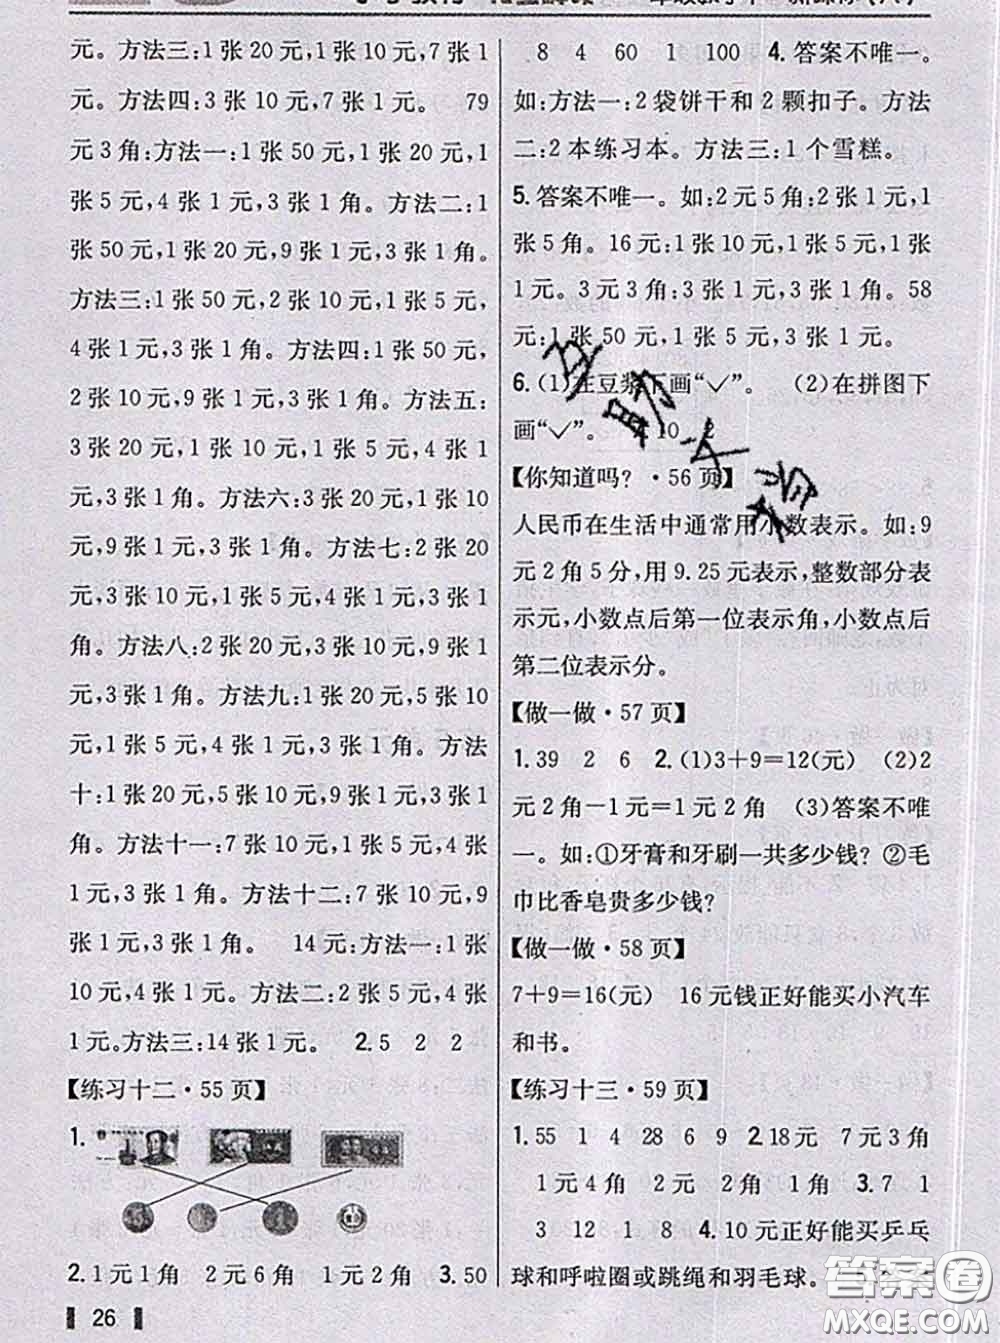 元。方法三:1 张 20 元,1 张 10 元,7 张 1
元。方法四:3 张 10 元,7 张 1 元。 79
元 3 角:方法一:1 张 50 元,1 张 20 元,1
张 5 元,4 张 1 元,3 张 1 角。方法二:1
张 50 元,1 张 20 元,9 张 1 元,3 张 1 角。
方法三:1 张 50 元,2 张 10 元,1 张 5 元,
4 张 1 元,3 张 1 角。方法四:1 张 50 元,
2 张 10 元,9 张 1 元,3 张 1 角。方法五:
3 张 20 元,1 张 10 元,1 张 5 元,4 张 1
元,3 张 1 角。方法六:3 张 20 元,1 张 10
元,9 张 1 元,3 张 1 角。方法七:2 张 20
元,3 张 10 元,1 张 5 元,4 张 1 元,3 张 1
角。方法八:2 张 20 元,3 张 10 元,9 张 1
元,3 张 1 角。方法九:1 张 20 元,5 张 10
元,1 张 5 元,4 张 1 元,3 张 1 角。方法
十:1 张 20 元,5 张 10 元,9 张 1 元,3 张 1
角。方法十一:7 张 10 元,1 张 5 元,4 张
1 元,3 张 1 角。方法十二:7 张 10 元,9
张 1 元,3 张 1 角。 14 元:方法一:1 张
10 元,4 张 1 元。方法二:2 张 5 元,4 张
1 元。方法三:14 张 1 元。 2.5 2 2
【练习十二·55 页】
1.
2.1 元 1 角 2 元 6 角 1 元 2 角 3.50
26
8 4 60 1 100 4.答案不唯一。
如:方法一:2 袋饼干和 2 颗扣子。方法
二:2 本练习本。方法三:1 个雪糕。
5.答案不唯一。如:2 元 5 角:2 张 1 元,1
张 5 角。16 元:1 张 10 元,1 张 5 元,1
张 1 元。3 元 3 角:3 张 1 元,3 张 1 角。58
元:1 张 50 元,1 张 5 元,3 张 1 元。
6.(1)在豆浆下画“✓”。 (2)在拼图下
画“✓”。 10 2
【你知道吗?·56 页】
人民币在生活中通常用小数表示。如:9
元 2 角 5 分,用 9.25 元表示,整数部分表
示元,小数点后第一位表示角,小数点后
第二位表示分。
【做一做·57 页】
1.39 2 6 2.(1)3+9=12(元) (2)2
元 2 角-1 元=1 元 2 角 (3)答案不唯
一。如:①牙膏和牙刷一共多少钱?②毛
巾比香皂贵多少钱?
【做一做·58 页】
7+9=16(元) 16 元钱正好能买小汽车
和书。
【练习十三·59 页】
1.55 1 4 28 6 9 2.18 元 7 元 3 角
1 元 4 角 2 元 2 角 3.7 1
3 12 1 8 4.10 元正好能买乒乓
球和呼啦圈或跳绳和羽毛球。
答案圈
MXQE.COM